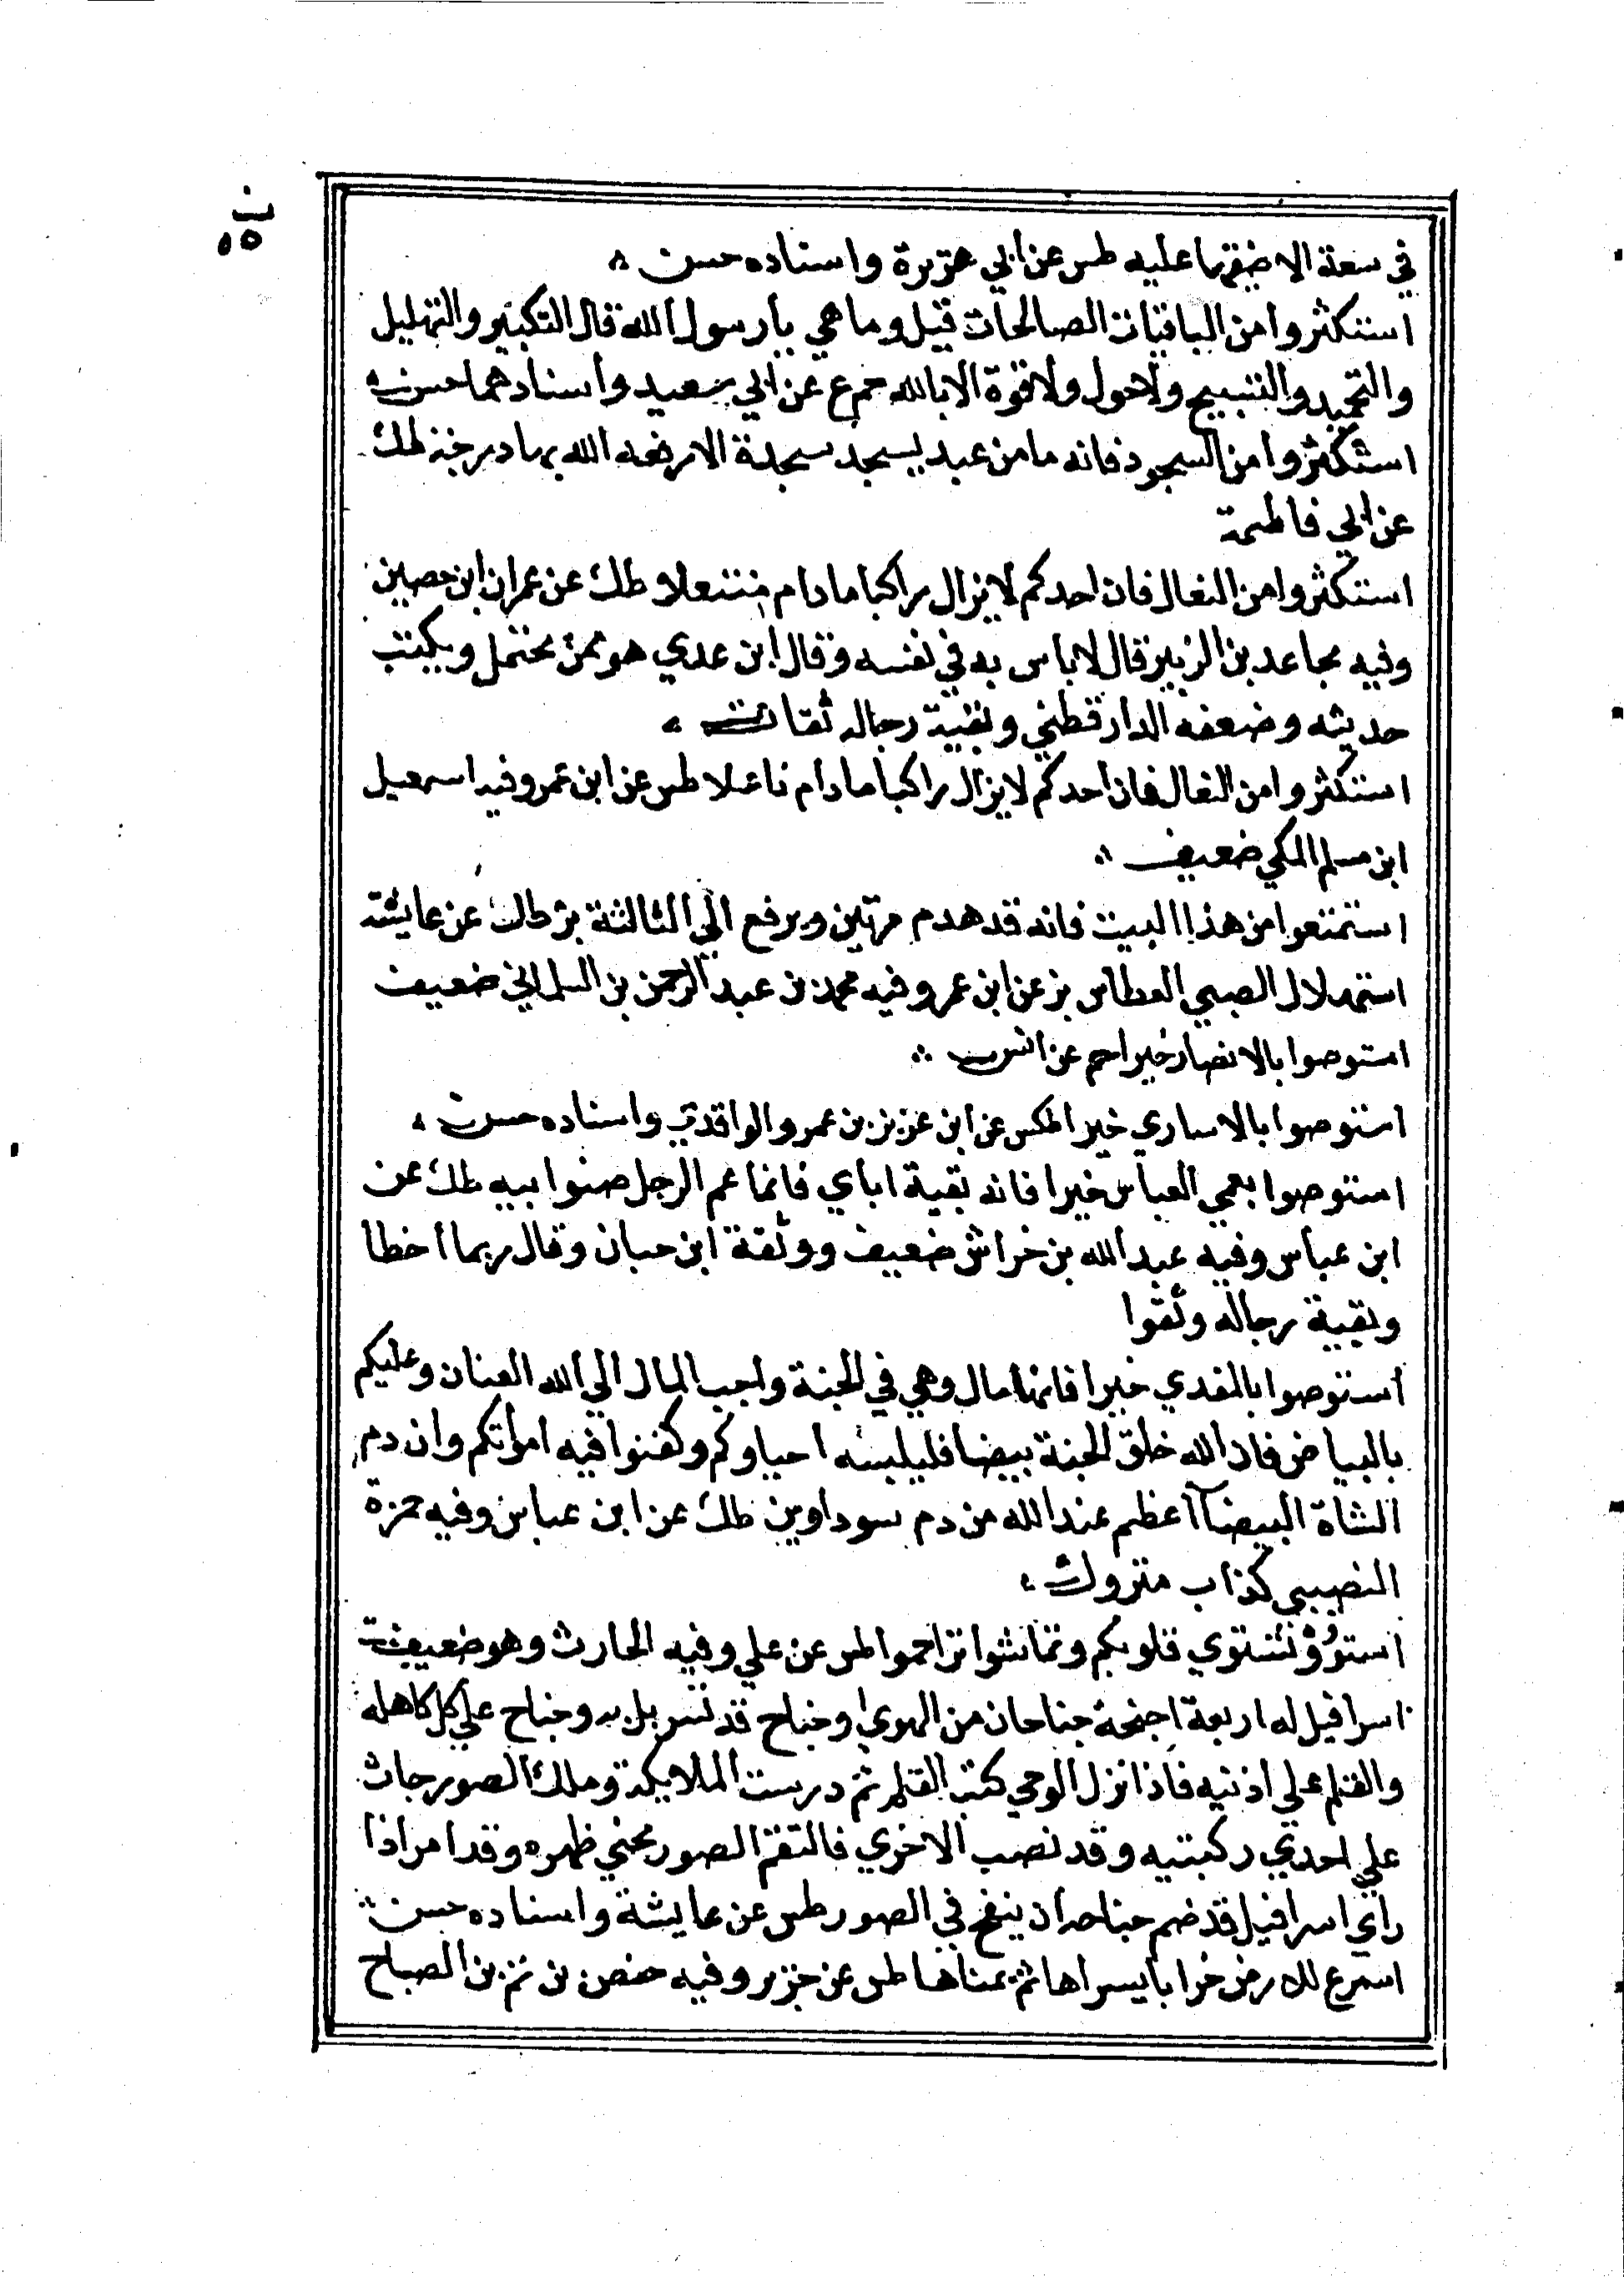 ب
٥١
في سعة الا ضيقها عليه طس عن ابي هريرة واسناده حسن
استكثروا من الباقيات الصالحات قيل وما هي يا رسول الله قال التكبير والتهليل
والتحميد والتسبيح ولا حول ولا قوة الا بالله حم ع عن ابي سعيد واسنادهما حسن
استكثروا من السجود فانه ما من عبد يسجد سجدة الا رفعه الله بها درجة طك
عن ابي فاطمة
استكثروا من النعال فان احدكم لا يزال راكبا ما دام منتعلا طك عن عمران ابن حصين
وفيه مجاعد بن الزبير قال لا باس به في نفسه وقال ابن عدي هو ممن يحتمل ويكتب
حديثه وضعفه الدارقطني وبقية رجاله ثقات
استكثروا من النعال فان احدكم لا يزال راكبا ما دام ناعلا طس عن ابن عمرو فيه اسمعيل
ابن مسلم المكي ضعيف
استمتعوا من هذا البيت فانه قد هدم مرتين ويرفع الي الثالثة بز طك عن عايشة
استهلال الصبي العطاس بز عن ابن عمر وفيه محمد بن عبد الرحمن بن السلماني ضعيف
استوصوا بالانصار خيرا حم عن انس
استوصوا بالاساري خيرا طكس عن ابن عزيز بن عمرو الواقدي واسناده حسن
استوصوا بعمي العباس خيرا فانه بقية اباي فانما عم الرجل صنوا بيه طك عن
ابن عباس وفيه عبد الله بن خراش ضعيف ووثقة ابن حبان وقال ربما اخطا
وبقية رجاله وثقوا
استوصوا بالمعزي خيرا فانها مال وهي في الجنة واحب المال الي الله الضان وعليكم
بالبياض فان الله خلق الجنة بيضا فليلبسه احياوكم وكفنوا فيه امواتكم وان دم
الشاة البيضا اعظم عند الله من دم سوداوين طك عن ابن عباس وفيه حمزة
النصيبي كذاب متروك
استووا تستوي قلوبكم وتماشوا تزاحموا طس عن علي وفيه الحارث وهو ضعيف
اسرافيل له اربعة اجنحة جناحان من الهوي وجناح قد تسربل به وجناح علي كل كاهله
والقلم علي اذنيه فاذا نزل الوحي كتب القلم ثم درست الملايكة وملك الصور جاث
علي احدي ركبتيه وقد نصب الاخري فالتقم الصور محني ظهره وقد امر اذا
راي اسرافيل قد ضم جناحه ان ينفخ في الصور طس عن عايشة واسناده حسن
اسرع للارض خرابا يسراها ثم يمناها طس عن جرير وفيه حفص بن بن الصباح